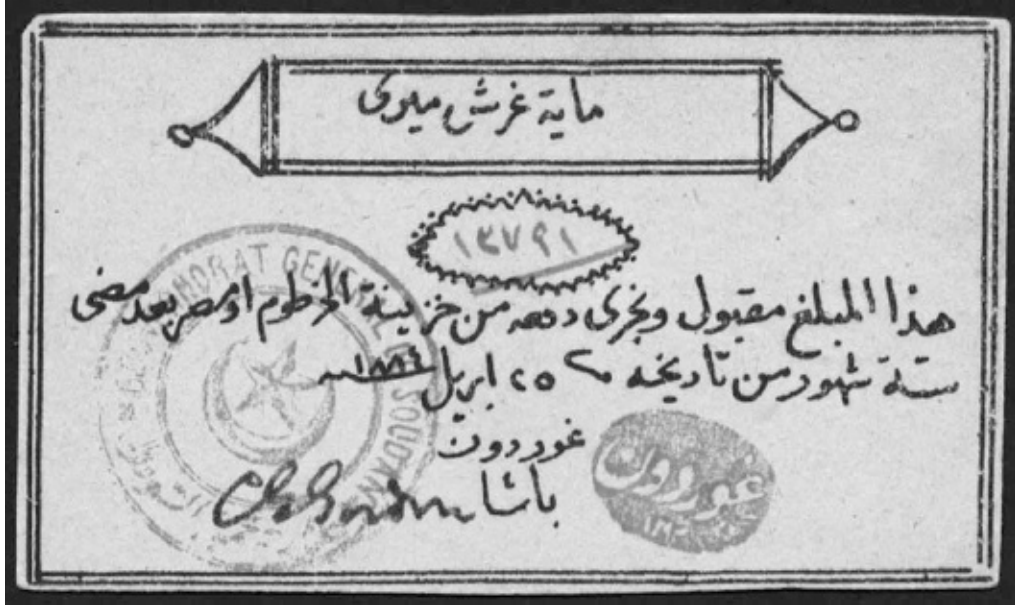 ماية غرش ميرى
١٣٧٩١
هذا المبلغ مقبول ويجرى دفعه من خزينة الخرطوم او مصر بعد مضى
ستة شهور من تاريخه ٢٥ ابريل ١٨٨٤
غوردون
باشا
GENERAL SOUDAN
غوردون